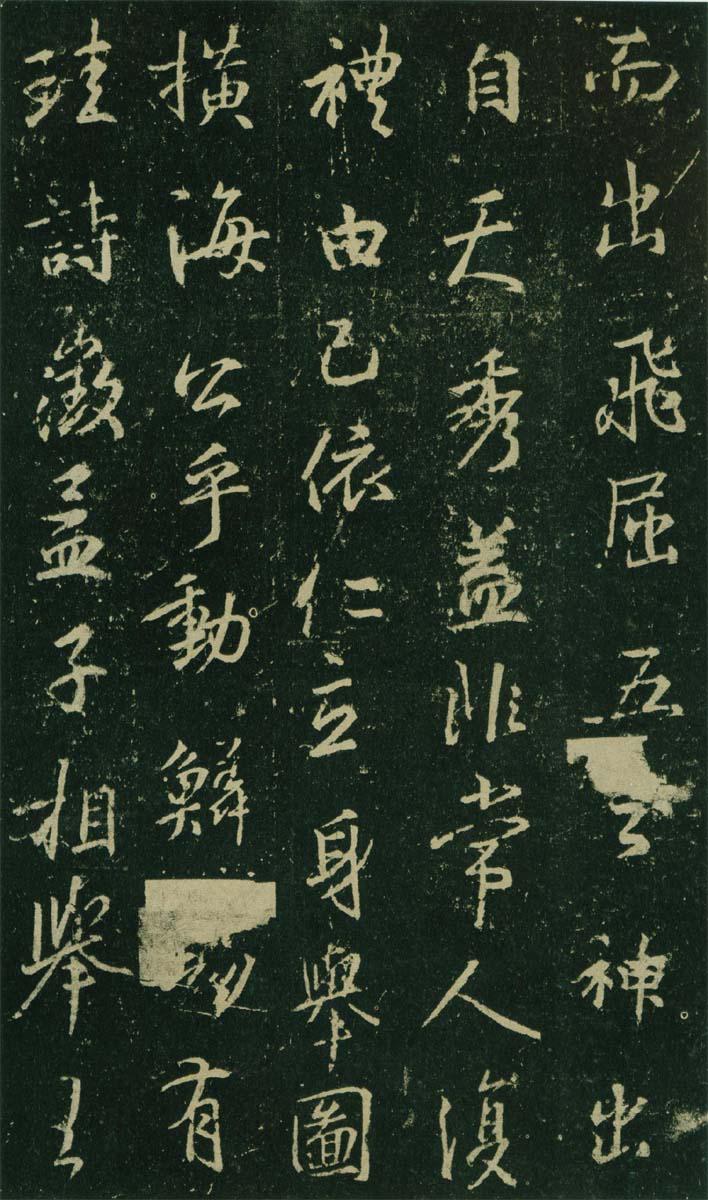 而出飛屈五雲神出
自天秀蓋非常人復
禮由己依仁立身舉圖
撗海公乎動鱗有
珪詩徵孟子相舉王